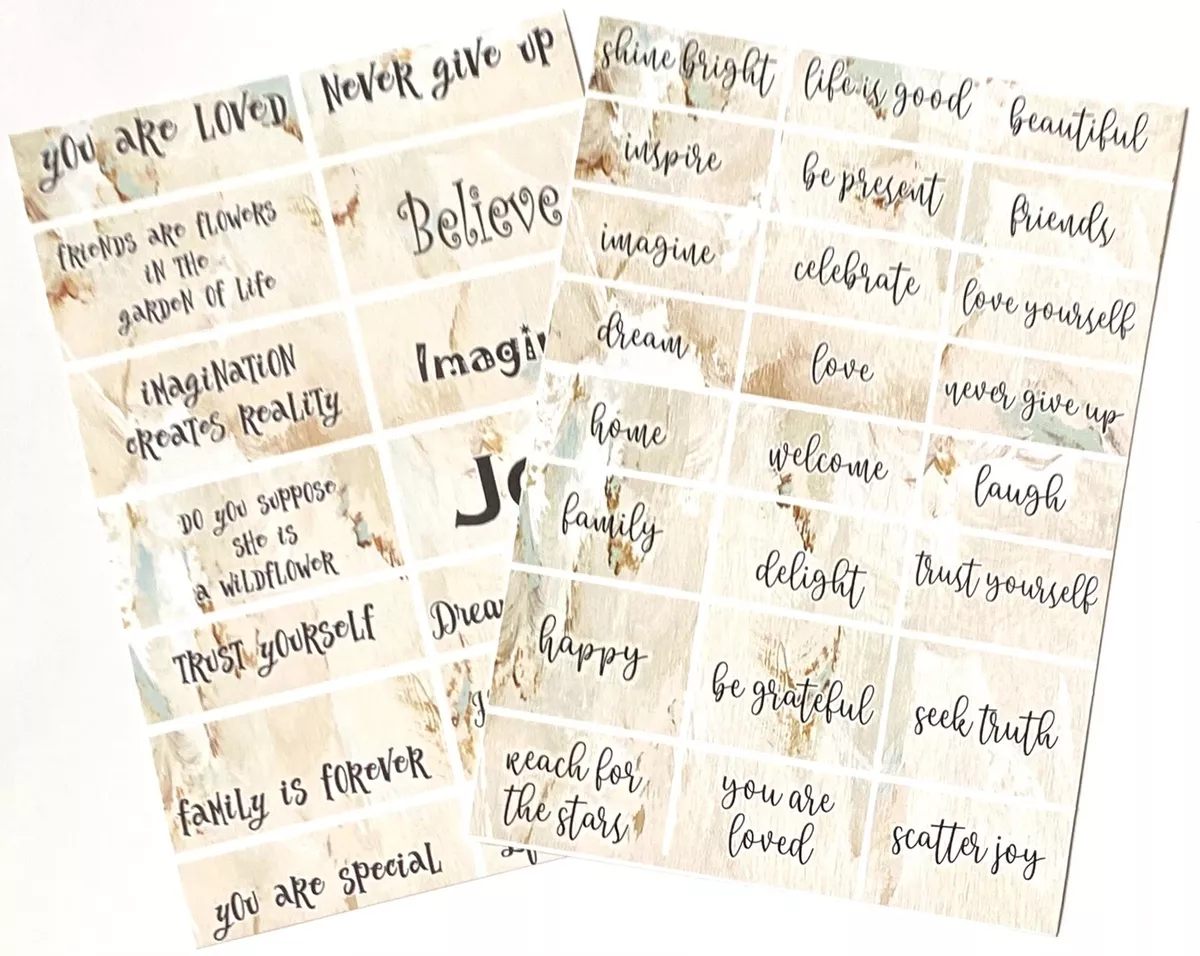 you are LOVED
Never give up
friends are flowers
in the
garden of life
Believe
imagination
creates reality
Do you suppose
she is
a wildflower
Trust yourself
family is forever
you are special
shine bright
life is good
beautiful
inspire
be present
friends
imagine
celebrate
love yourself
dream
love
never give up
home
welcome
laugh
family
delight
trust yourself
happy
be grateful
seek truth
reach for
the stars
you are
loved
scatter joy